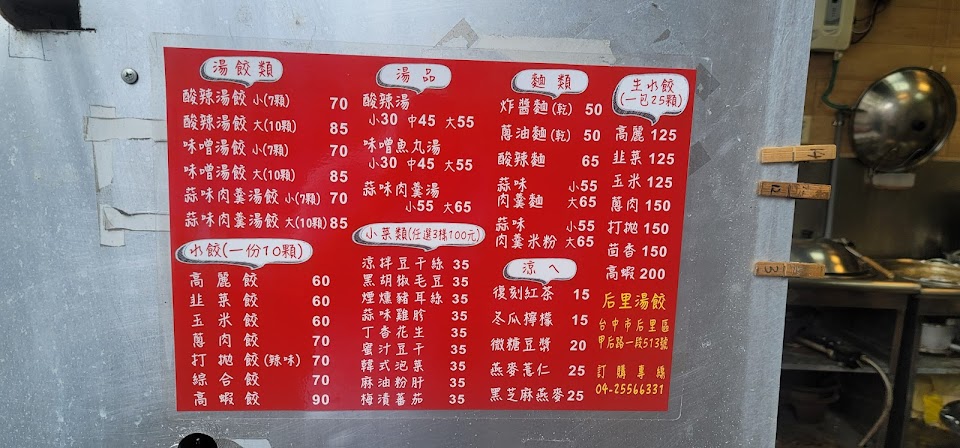 湯餃類
酸辣湯餃 小(7顆) 70
酸辣湯餃 大(10顆) 85
味噌湯餃 小(7顆) 70
味噌湯餃 大(10顆) 85
蒜味肉羹湯餃 小(7顆) 70
蒜味肉羹湯餃 大(10顆) 85
水餃(一份10顆)
高麗餃 60
韭菜餃 60
玉米餃 60
蔥肉餃 70
打拋餃(辣味) 70
綜合餃 70
高蝦餃 90
湯品
酸辣湯
小30 中45 大55
味噌魚丸湯
小30 中45 大55
蒜味肉羹湯
小55 大65
小菜類(任選3樣100元)
涼拌豆干絲 35
黑胡椒毛豆 35
煙燻豬耳絲 35
蒜味雞胗 35
丁香花生 35
蜜汁豆干 35
韓式泡菜 35
麻油粉肝 35
梅漬蕃茄 35
麵類
炸醬麵(乾) 50
蔥油麵(乾) 50
酸辣麵 65
蒜味 小55
肉羹麵 大65
蒜味 小55
肉羹米粉 大65
涼ㄟ
復刻紅茶 15
冬瓜檸檬 15
微糖豆漿 20
燕麥薏仁 25
黑芝麻燕麥 25
生水餃
(一包25顆)
高麗 125
韭菜 125
玉米 125
蔥肉 150
打拋 150
茴香 150
高蝦 200
后里湯餃
台中市后里區
甲后路一段513號
訂購專線
04-25566331